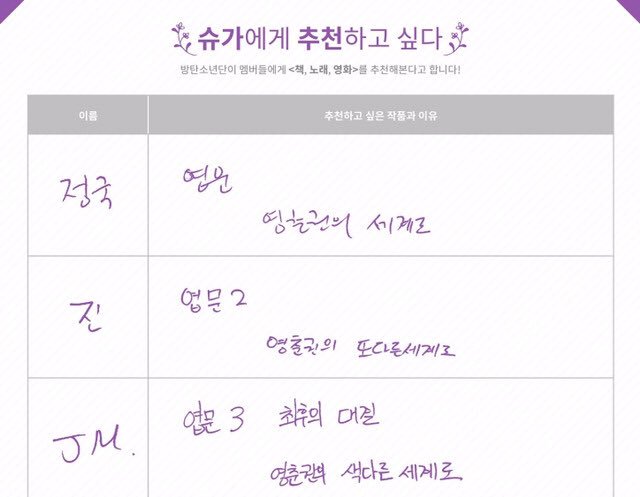 슈가에게 추천하고 싶다
방탄소년단이 멤버들에게 <책, 노래, 영화>를 추천해본다고 합니다!
이름 추천하고 싶은 작품과 이유
정국 엽문
영춘권의 세계로
진 엽문 2
영춘권의 또다른세계로
JM. 엽문 3 최후의 대결
영춘권의 색다른 세계로.